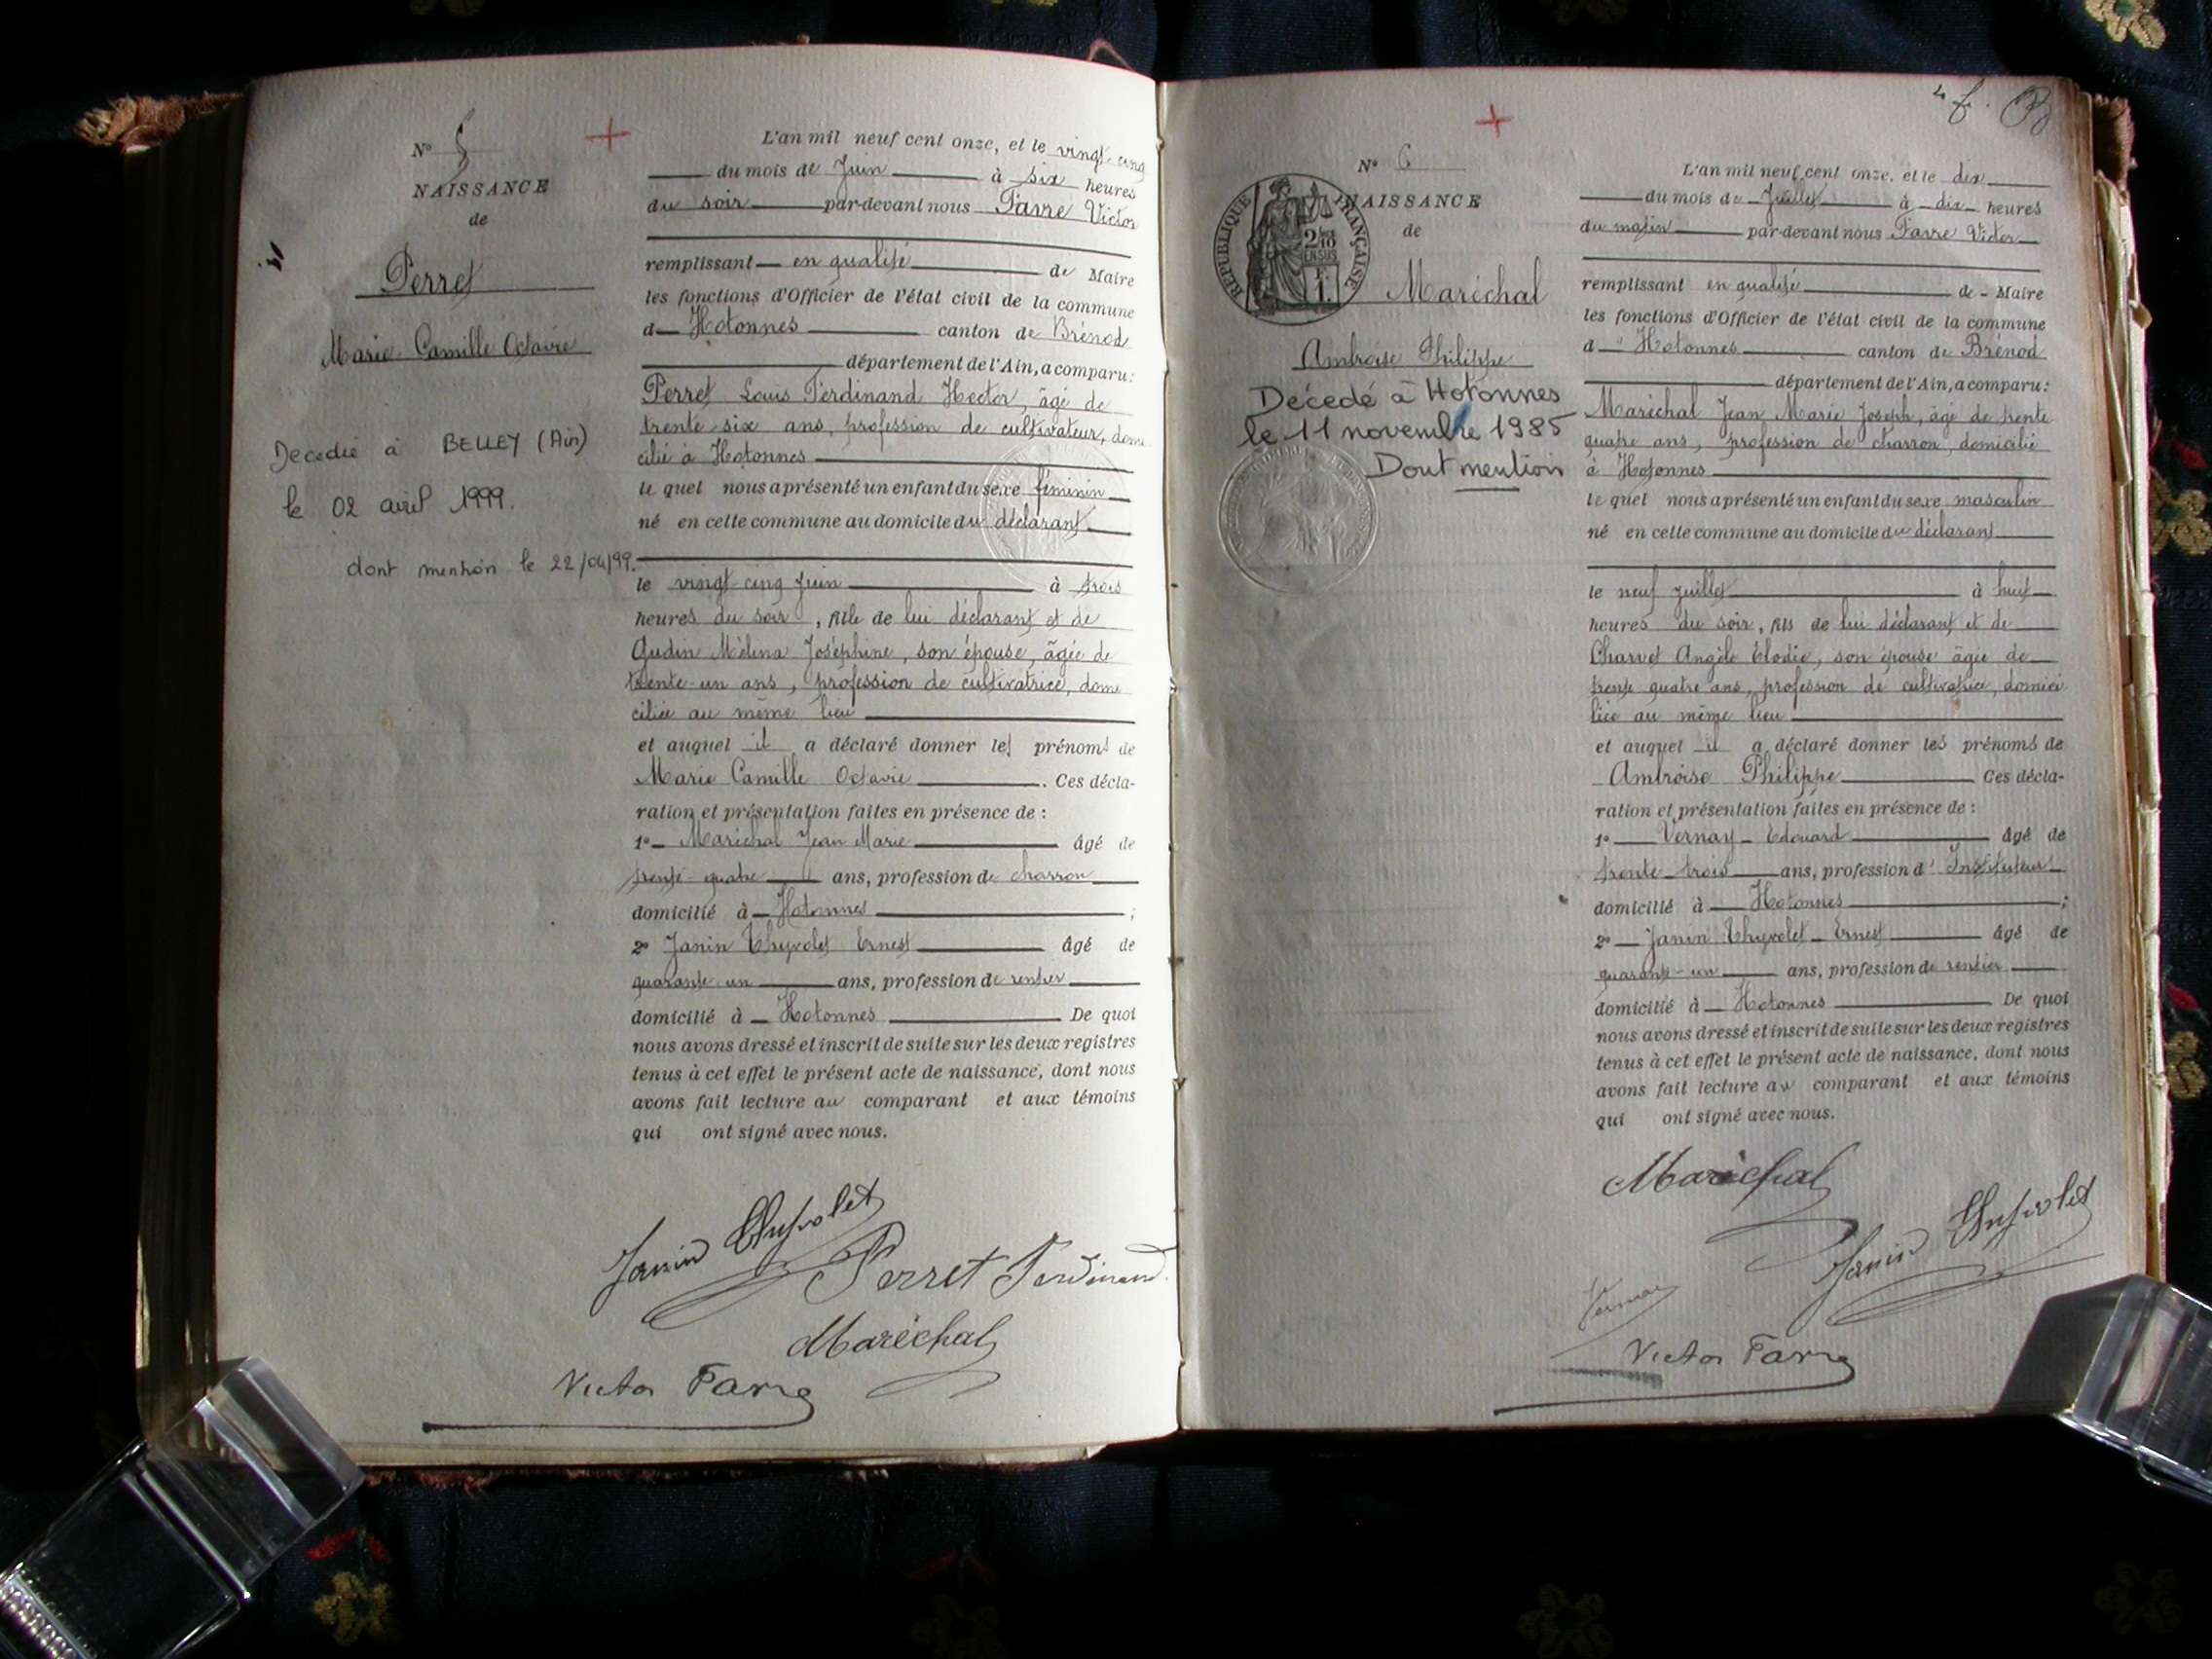 N° 5
NAISSANCE
de
Perret
Marie Camille Octavie
Decedée à BELLEY (Ain)
le 02 avril 1999.
dont mention le 22/04/99.
L'an mil neuf cent onze, et le vingt-cinq
du mois de Juin à six heures
du soir par-devant nous Favre Victor
remplissant en qualité de Maire
les fonctions d'Officier de l'état civil de la commune
d Hotonnes canton de Brénod
département de l'Ain, a comparu:
Perret Louis Ferdinand Hector, âgé de
trente-six ans, profession de cultivateur, domi
cilié à Hotonnes
le quel nous a présenté un enfant du sexe féminin
né en cette commune au domicile du déclarant
le vingt cinq juin à trois
heures du soir, fille de lui déclarant et de
Gudin Mélina Joséphine, son épouse, âgée de
trente-un ans, profession de cultivatrice, domi
ciliée au même lieu
et auquel il a déclaré donner les prénoms de
Marie Camille Octavie. Ces décla-
ration et présentation faites en présence de :
1° Maréchal Jean Marie âgé de
trente-quatre ans, profession de charron
domicilié à Hotonnes ;
2° Janin Thyvolet Ernest âgé de
quarante-un ans, profession de rentier
domicilié à Hotonnes De quoi
nous avons dressé et inscrit de suite sur les deux registres
tenus à cet effet le présent acte de naissance, dont nous
avons fait lecture au comparant et aux témoins
qui ont signé avec nous.
Janin Thyvolet
Perret Ferdinand
Maréchal
Victor Favre
N° 6
NAISSANCE
de
RÉPUBLIQUE FRANÇAISE
2/10
EN SUS
1 F.
Maréchal
Ambroise Philippe
Décédé à Hotonnes
le 11 novembre 1985
Dont mention
L'an mil neuf cent onze, et le dix
du mois de Juillet à dix heures
du matin par-devant nous Favre Victor
remplissant en qualité de Maire
les fonctions d'Officier de l'état civil de la commune
d Hotonnes canton de Brénod
département de l'Ain, a comparu:
Maréchal Jean Marie Joseph, âgé de trente
quatre ans, profession de charron, domicilié
à Hotonnes
le quel nous a présenté un enfant du sexe masculin
né en cette commune au domicile du déclarant
le neuf juillet à huit
heures du soir, fils de lui déclarant et de
Charvet Angèle Elodie, son épouse âgée de
trente quatre ans, profession de cultivatrice, domici
liée au même lieu
et auquel il a déclaré donner les prénoms de
Ambroise Philippe Ces décla-
ration et présentation faites en présence de :
1° Vernay Edouard âgé de
trente-trois ans, profession d'Instituteur
domicilié à Hotonnes ;
2° Janin Thyvolet Ernest âgé de
quarante-un ans, profession de rentier
domicilié à Hotonnes De quoi
nous avons dressé et inscrit de suite sur les deux registres
tenus à cet effet le présent acte de naissance, dont nous
avons fait lecture au comparant et aux témoins
qui ont signé avec nous.
Maréchal
Janin Thyvolet
Vernay
Victor Favre